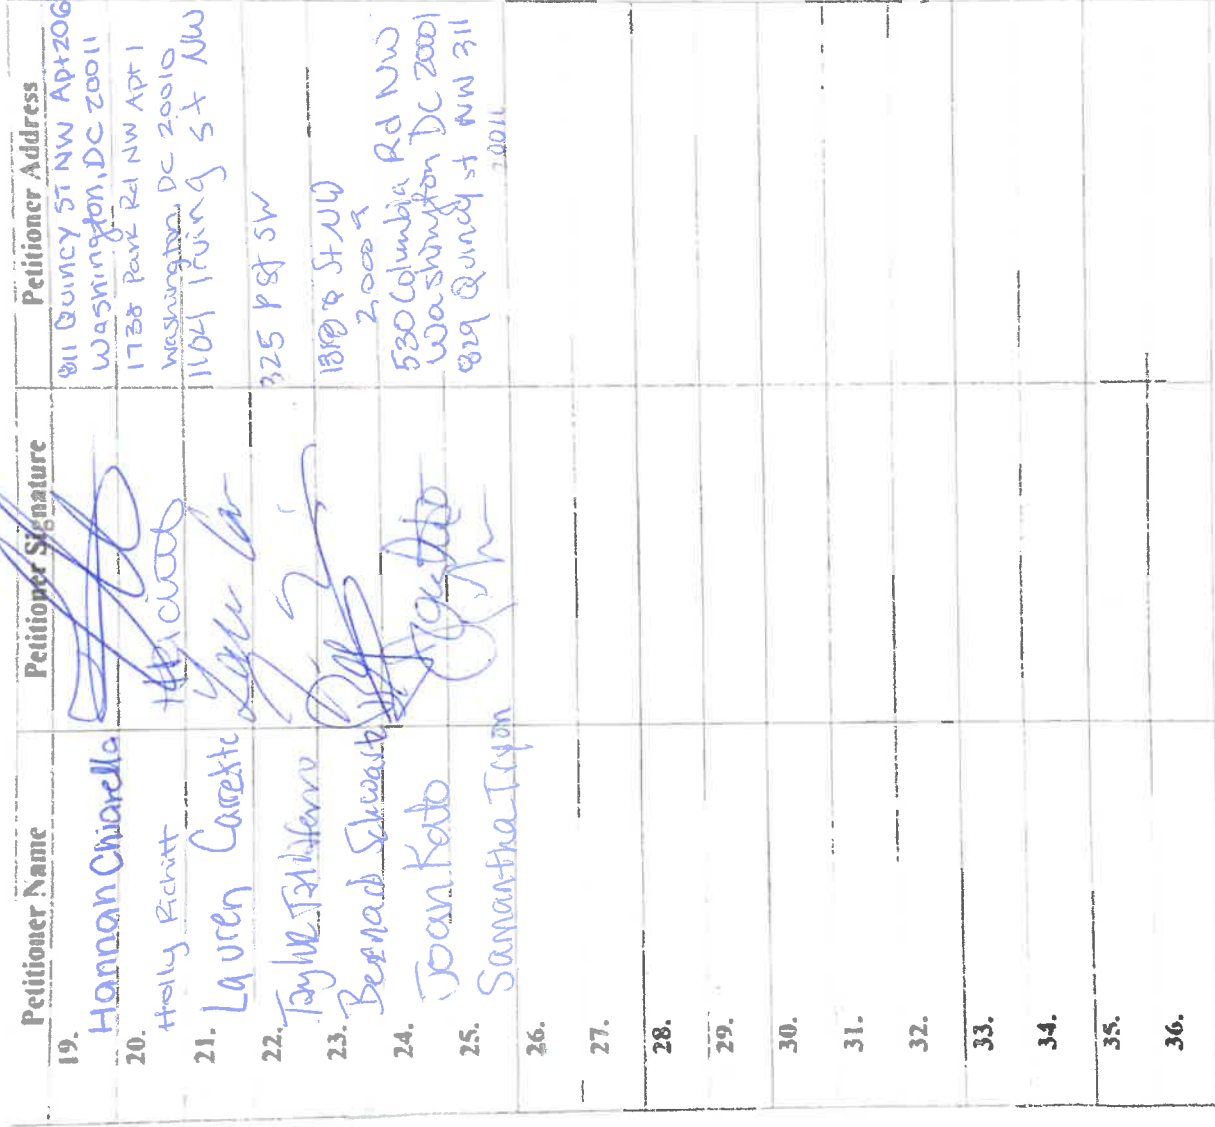 Petitioner Name Petitioner Signature Petitioner Address
19. Hannah Chiarella 811 Quincy ST NW Apt 206
Washington, DC 20011
20. Holly Richitt 1738 Park Rd NW Apt 1
Washington DC 20010
21. Lauren Carrette 1104 Irving St NW
22. 325 P St SW
23. Bernad Schwartz St NW
20009
24. Joan Kato 530 Columbia Rd NW
Washington DC 20001
25. Samantha Tryon 829 Quincy St NW 311
20011
26.
27.
28.
29.
30.
31.
32.
33.
34.
35.
36.